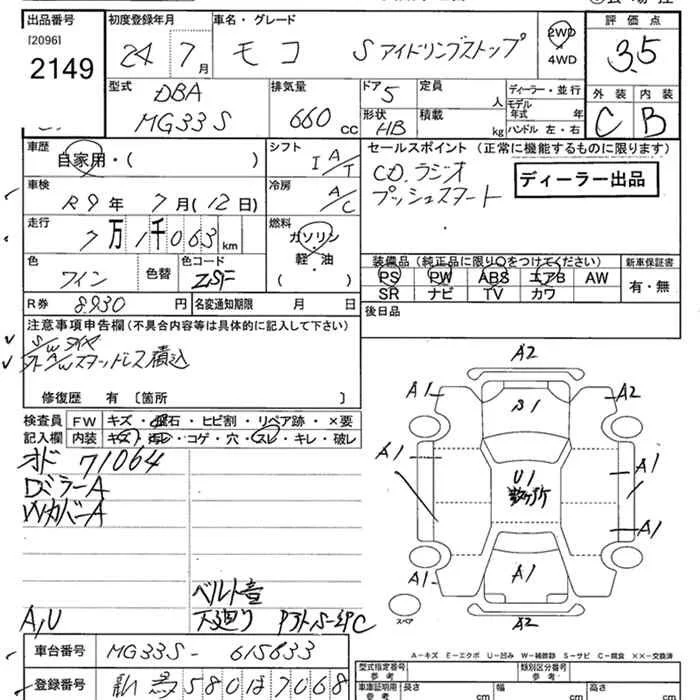 出品番号
[2096]
2149
初度登録年月
24 7月
車名・グレード
モコ Sアイドリングストップ
2WD
4WD
評価点
3.5
外装 内装
C B
型式
DBA
MG33S
排気量
660cc
ドア 5
形状 HB
定員 人
積載 kg
ディーラー・並行
モデル年式 年
ハンドル 左・右
車歴
自家用・( )
シフト
I A/T
車検
R9年 7月(12日)
冷房
A/C
走行
7万1千063km
燃料
ガソリン・軽・油
( )
色
ワイン
色替
色コード
ZSF
R券 8930円
名変通知期限 月 日
セールスポイント(正常に機能するものに限ります)
CD.ラジオ
プッシュスタート
ディーラー出品
装備品(純正品に限り○をつけてください)
PS PW ABS エアB AW
SR ナビ TV カワ
新車保証書
有・無
後日品
注意事項申告欄(不具合内容等は具体的に記入して下さい)
S/Wタイヤ
外A/Wスタッドレス積込
修復歴 有 〔箇所 〕
検査員記入欄
FW キズ・飛石・ヒビ割・リペア跡・×要
内装 キズ・汚レ・コゲ・穴・スレ・キレ・破レ
オド 71064
DミラーA
WカバーA
A/U
ベルト音
下廻り
C
A2
A1 A2
B1
A1 A1
U1
数ヶ所
A1
A1 A1
A2
スペア
A-キズ E-エクボ U-凹み W-補修跡 S-サビ C-腐食 ××-交換済
車台番号 MG33S-615633
登録番号 580は7068
型式指定番号 参考
類別区分番号 参考
車庫証明用 参考
長さ cm 幅 cm 高さ cm